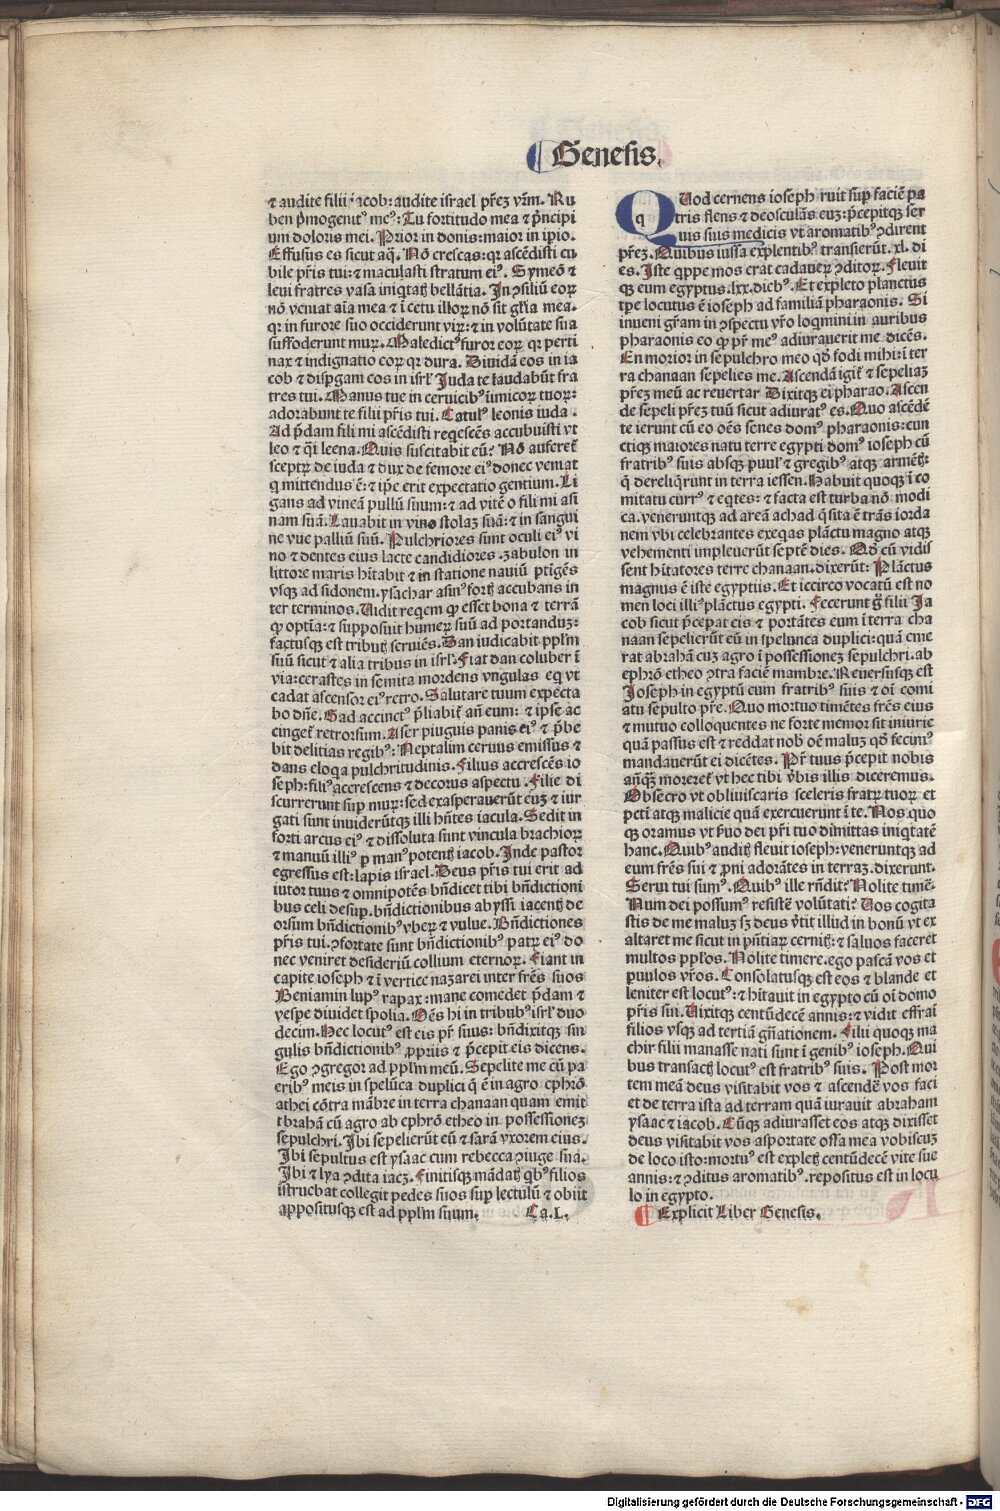 Genesis.
⁊ audite filii iacob: audite israel pr̄ez vr̄m. Ru
ben pͥmogenitꝰ meꝰ: Tu fortitudo mea ⁊ pͥncipi
um doloris mei. Prior in donis: maior in īpio.
Effusus es sicut aq̄. Nō crescas: qꝛ ascēdisti cu
bile pr̄is tui: ⁊ maculasti stratum eiꝰ. Symeō ⁊
leui fratres vasa iniqͥtatꝭ bellātia. In ꝯsiliū eoꝝ
nō veniat aīa mea ⁊ ī cetu illoꝝ nō sit gl̄ia mea.
qꝛ in furore suo occiderunt viꝝ: ⁊ in volūtate sua
suffoderunt muꝝ. Maledictꝰ furor eoꝝ qꝛ perti
nax ⁊ indignatio eoꝝ qꝛ dura. Diuidā eos in ia
cob ⁊ disꝑgam eos in isrl̄ Juda te laudabūt fra
tres tui. Manus tue in ceruicibꝰ īimicoꝝ tuoꝝ:
adorabunt te filii pr̄is tui. Catulꝰ leonis iuda.
Ad p̄dam fili mi ascēdisti reqͥescēs accubuisti vt
leo ⁊ qͣi leena. Quis suscitabit eū? Nō auferet᷑
sceptꝝ de iuda ⁊ dux de femore eiꝰ donec veniat
q mittendus ē: ⁊ ip̄e erit expectatio gentium. Li
gans ad vineā pullū suum: ⁊ ad vitē o fili mi asi
nam suā. Lauabit in vino stolaꝫ suā: ⁊ in sangui
ne vue palliū suū. Pulchriores sunt oculi eiꝰ vi
no ⁊ dentes eius lacte candidiores. zabulon in
littore maris hītabit ⁊ in statione nauiū ꝑtigēs
vsqꝫ ad sidonem. ysachar asinꝰ fortꝭ accubans in
ter terminos. Uidit reqͥem ꝙ esset bona ⁊ terrā
ꝙ optīa: ⁊ supposuit humeꝝ suū ad portanduꝫ:
factusqꝫ est tributꝭ seruiēs. Dan iudicabit pplm̄
suū sicut ⁊ alia tribus in isrl̄. Fiat dan coluber ī
via: cerastes in semita mordens vngulas eqͥ vt
cadat ascensor eiꝰ retro. Salutare tuum expecta
bo dn̄e. Gad accinctꝰ p̄liabit᷑ an̄ eum: ⁊ ipse ac
cinget᷑ retrorsum. Aser pinguis panis eiꝰ ⁊ p̄be
bit delitias regibꝰ: Neptalim ceruus emissus ⁊
dans eloqͥa pulchritudinis. Filius accrescēs io
seph: filiꝰ accrescens ⁊ decorus aspectu. Filie di
scurrerunt suꝑ muꝝ: sed exasperauerūt euꝫ ⁊ iur
gati sunt inuiderūtqꝫ illi hn̄tes iacula. Sedit in
forti arcus eiꝰ ⁊ dissoluta sunt vincula brachioꝝ
⁊ manuū illiꝰ ꝑ manꝰ potentꝭ iacob. Inde pastor
egressus est: lapis israel. Deus pr̄is tui erit ad
iutor tuus ⁊ omnipotēs bn̄dicet tibi bn̄dictioni
bus celi desuꝑ. bn̄dictionibus abyssi iacentꝭ de
orsum bn̄dictionibꝰ vbeꝝ ⁊ vulue. Bn̄dictiones
pr̄is tui. ꝯfortate sunt bn̄dictionibꝰ patꝝ eiꝰ do
nec veniret desideriū collium eternoꝝ. Fiant in
capite ioseph ⁊ ī vertice nazarei inter frēs suos
Beniamin lupꝰ rapax: mane comedet p̄dam ⁊
vesꝑe diuidet spolia. Oēs hi in tribubꝰ isrl̄ duo
decim. Hec locutꝰ est eis pr̄ suus: bn̄dixitqꝫ sin
gulis bn̄dictionibꝰ ꝓpriis ⁊ p̄cepit eis dicens.
Ego ꝯgregor ad pplm̄ meū. Sepelite me cū pa
tribꝰ meis in speluca duplici q̄ ē in agro ephrō
athei cōtra mābre in terra chanaan quam emit
t brahā cū agro ab ephrō etheo in possessioneꝫ
sepulchri. Ibi sepelierūt eū ⁊ sarā vxorem eius.
Ibi sepultus est ysaac cum rebecca ꝯiuge sua.
Ibi ⁊ lya ꝯdita iacꝫ. Finitisqꝫ mādatꝭ qͥbꝰ filios
istruebat collegit pedes suos suꝑ lectulū ⁊ obiit
appositusqꝫ est ad pplm̄ suum. Ca. L.
QUod cernens ioseph ruit suꝑ faciē pa
tris flens ⁊ deosculās euꝫ: p̄cepitqꝫ ser
uis suis medicis vt aromatibꝰ ꝯdirent
pr̄eꝫ. Quibus iussa explentibꝰ transierūt. xl. di
es. Iste qͥppe mos erat cadaueꝝ ꝯditoꝝ. Fleuit
qꝫ eum egyptus. lxx. diebꝰ. Et expleto planctus
tꝑe locutus ē ioseph ad familiā pharaonis. Si
inueni gr̄am in ꝯspectu vr̄o loqͥmini in auribus
pharaonis eo ꝙ pr̄ meꝰ adiurauerit me dicēs.
En morior in sepulchro meo qd̄ fodi mihi: ī ter
ra chanaan sepelies me. Ascendā igit᷑ ⁊ sepeliaꝫ
pr̄eꝫ meū ac reuertar Dixitqꝫ ei pharao. Ascen
de sepeli pr̄eꝫ tuū sicut adiuratꝰ es. Quo ascēdē
te ierunt cū eo oēs senes domꝰ pharaonis: cun
ctiqꝫ maiores natu terre egypti domꝰ ioseph cū
fratribꝰ suis absqꝫ puul̄ ⁊ gregibꝰ atqꝫ armētꝭ:
q̄ dereliq̄runt in terra iessen. Habuit quoqꝫ ī co
mitatu currꝰ ⁊ eqͥtes: ⁊ facta est turba nō modi
ca. veneruntqꝫ ad areā achad q̄ sita ē trās iorda
nem vbi celebrantes exeqͥas plāctu magno atqꝫ
vehementi impleuerūt septē dies. Qd̄ cū vidis
sent hītatores terre chanaan. dixerūt: Plāctus
magnus ē iste egyptiis. Et iccirco vocatū est no
men loci illiꝰ plāctus egypti. Fecerunt g̊ filii Ja
cob sicut p̄cepat eis ⁊ portātes eum ī terra cha
naan sepelierūt eū in spelunca duplici: quā eme
rat abrahā cuꝫ agro ī possessioneꝫ sepulchri. ab
ephrō etheo ꝯtra faciē mambre. Reuersusqꝫ est
Joseph in egyptū cum fratribꝰ suis ⁊ oī comi
atu sepulto pr̄e. Quo mortuo timētes frēs eius
⁊ mutuo colloquentes ne forte memor sit iniurie
quā passus est ⁊ reddat nob̄ oē maluꝫ qd̄ fecimꝰ
mandauerūt ei dicētes. Pr̄ tuus p̄cepit nobis
anͣqꝫ moreret᷑ vt hec tibi v̄bis illis diceremus.
Obsecro vt obliuiscaris sceleris fratꝝ tuoꝝ et
pctī atqꝫ malicie quā exercuerunt ī te. Nos quo
qꝫ oramus vt ẜuo dei pr̄i tuo dimittas iniqͥtatē
hanc. Quibꝰ auditꝭ fleuit ioseph: veneruntqꝫ ad
eum frēs sui ⁊ ꝓni adorātes in terraꝫ. dixerunt.
Serui tui sumꝰ. Quibꝰ ille rn̄dit: Nolite timē.
Num dei possumꝰ resistē volūtati? Uos cogita
stis de me maluꝫ sꝫ deus v̄tit illud in bonū vt ex
altaret me sicut in pn̄tiaꝝ cernitꝭ: ⁊ saluos faceret
multos ppl̄os. Nolite timere. ego pascā vos et
puulos vr̄os. Consolatusqꝫ est eos ⁊ blande et
leniter est locutꝰ: ⁊ hītauit in egypto cū oī domo
pr̄is sui. Uixitqꝫ centūdecē annis: ⁊ vidit effrai
filios vsqꝫ ad tertiā gn̄ationem. Filii quoqꝫ ma
chir filii manasse nati sunt ī genibꝰ ioseph. Qui
bus transactꝭ locutꝰ est fratribꝰ suis. Post mor
tem meā deus visitabit vos ⁊ ascendē vos faci
et de terra ista ad terram quā iurauit abraham
ysaac ⁊ iacob. Cūqꝫ adiurasset eos atqꝫ dixisset
deus visitabit vos asportate ossa mea vobiscuꝫ
de loco isto: mortuꝰ est expletꝭ centūdecē vite sue
annis: ⁊ ꝯditus aromatibꝰ. repositus est in locu
lo in egypto.
Explicit Liber Genesis.
Digitalisierung gefördert durch die Deutsche Forschungsgemeinschaft - DFG